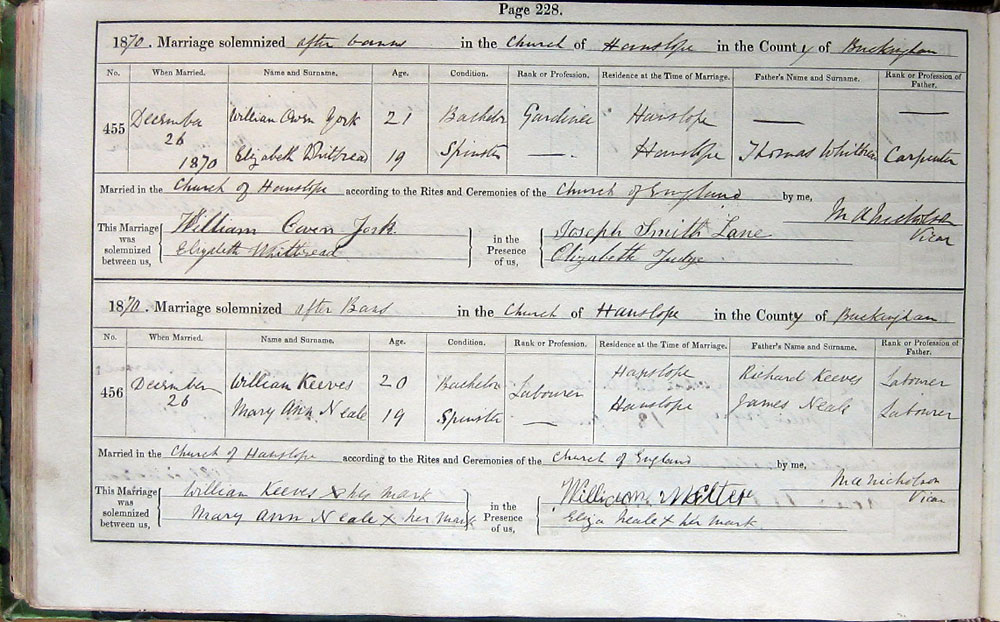 Page 228.
1870. Marriage solemnized after banns in the Church of Hanslope in the County of Buckingham
No. When Married. Name and Surname. Age. Condition. Rank or Profession. Residence at the Time of Marriage. Father's Name and Surname. Rank or Profession of Father.
455 December 26 1870
William Owen York 21 Bachelor Gardiner Hanslope — —
Elizabeth Whitbread 19 Spinster —. Hanslope Thomas Whitbread Carpenter
Married in the Church of Hanslope according to the Rites and Ceremonies of the Church of England by me,
M A Nicholson
Vicar
This Marriage was solemnized between us, William Owen York in the Presence of us, Joseph Smith Lane
Elizabeth Whitbread Elizabeth Judge
1870. Marriage solemnized after Bans in the Church of Hanslope in the County of Buckingham
No. When Married. Name and Surname. Age. Condition. Rank or Profession. Residence at the Time of Marriage. Father's Name and Surname. Rank or Profession of Father.
456 December 26
William Keeves 20 Bachelor Labourer Hanslope Richard Keeves Labourer
Mary Ann Neale 19 Spinster — Hanslope James Neale Labourer
Married in the Church of Hanslope according to the Rites and Ceremonies of the Church of England by me,
M A Nicholson
Vicar
This Marriage was solemnized between us, William Keeves x his mark in the Presence of us, William
Mary Ann Neale x her mark Eliza Neale x her mark